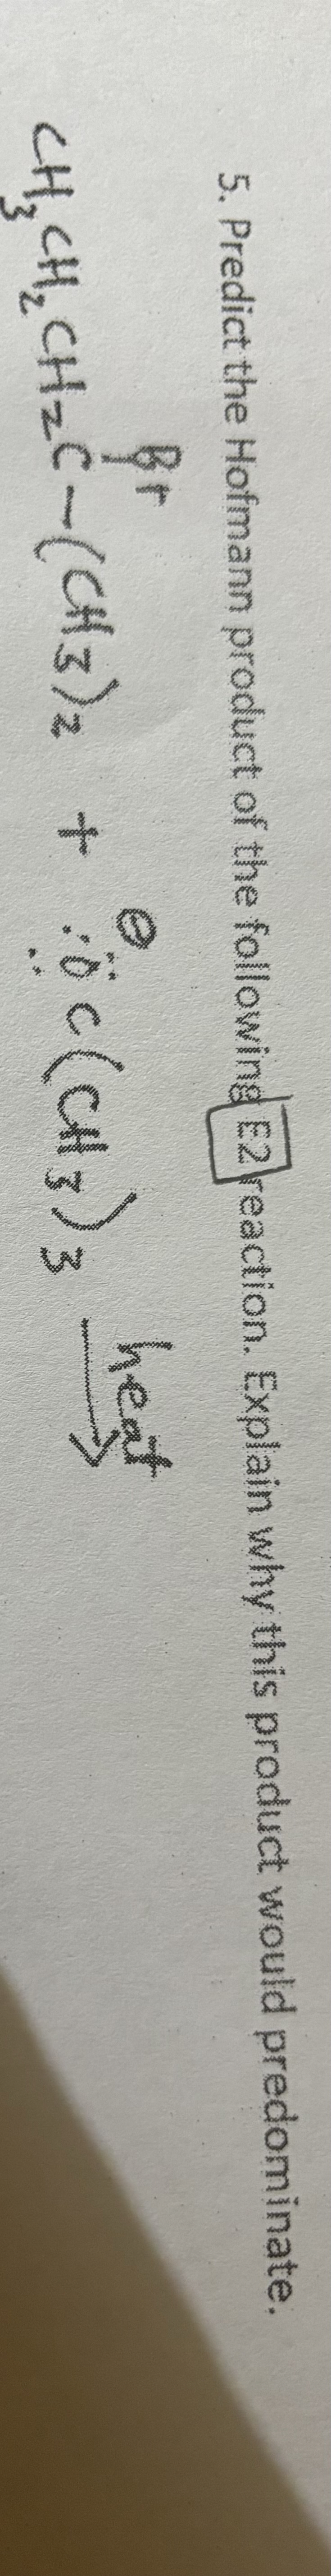 5. Predict the Hofmann product of the following E2 reaction. Explain why this product would predominate.
Br
CH3CH2CH2C-(CH3)2 + ⊖:ÖC(CH3)3 heat →